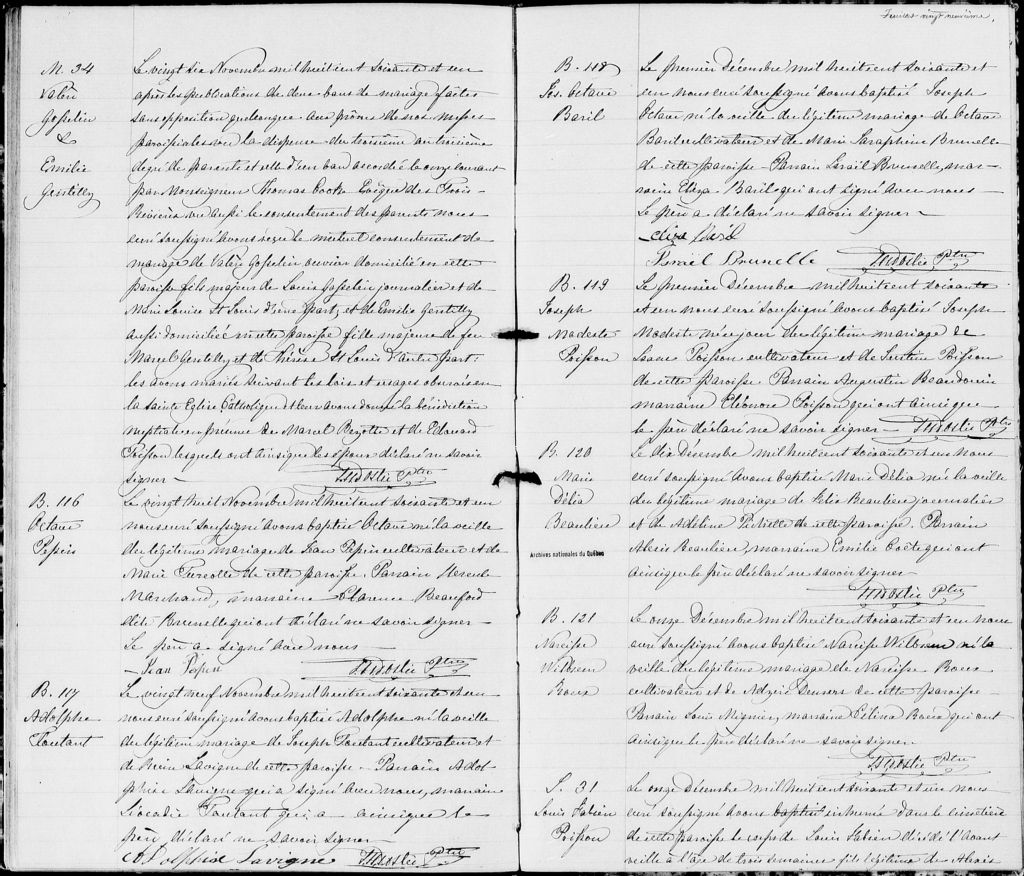 M. 34
Valère
Gosselin
&
Emilie
Gentilly
Le vingt six Novembre mil huit cent soixante et un
après les publications de deux bans de mariage faites
sans opposition quelconque aux prônes de nos messes
paroissiales vu la dispense du troisième au troisième
degré de parenté et celle d'un ban accordé le onze courant
par Monseigneur Thomas Cooke Evêque des Trois-
Rivières vu aussi le consentement des parents nous
curé soussigné avons reçu le mutuel consentement de
mariage de Valère Gosselin ouvrier domicilié en cette
paroisse fils majeur de Louis Gosselin journalier et de
Marie Louise St Louis d'une part; et de Emilie Gentilly
aussi domiciliée en cette paroisse fille majeure de feu
Marcel Gentilly et de Thérèse St Louis d'autre part:
les avons mariés suivant les lois et usages observés en
la Sainte Eglise Catholique et leur avons donné la bénédiction
nuptiale en présence de Marcel Rezotte et de Edouard
Poisson lesquels ont ainsi que les époux déclaré ne savoir
signer -
Ptre
B. 116
Octave
Pepin
Le vingt huit Novembre mil huit cent soixante et un
nous curé soussigné avons baptisé Octave né la veille
du légitime mariage de Jean Pepin cultivateur et de
Marie Turcotte de cette paroisse. Parrain Hercule
Marchand, marraine Clarence Beauford
dite Brunelle qui ont déclaré ne savoir signer -
Le père a signé avec nous -
Jean Pepin Ptre
B. 117
Adolphe
Toutant
Le vingt neuf Novembre mil huit cent soixante et un
nous curé soussigné avons baptisé Adolphe né la veille
du légitime mariage de Joseph Toutant cultivateur et
de Reine Lavigne de cette paroisse - Parrain Adol-
phe Lavigne qui a signé avec nous, marraine
Léocadie Toutant qui a ainsi que le
père déclaré ne savoir signer -
Adolphe Lavigne Ptre
Feuillet vingt neuvième.
B. 118
Jos. Octave
Baril
Le premier Décembre mil huit cent soixante et
un nous curé soussigné avons baptisé Joseph
Octave né la veille du légitime mariage de Octave
Baril cultivateur et de Marie Séraphine Brunelle
de cette paroisse - Parrain Israël Brunelle, mar-
raine Eliza Baril qui ont signé avec nous -
Le père a déclaré ne savoir signer -
Eliza Baril
Israël Brunelle Ptre
B. 119
Joseph
Modeste
Poisson
Le premier Décembre mil huit cent soixante
et un nous curé soussigné avons baptisé Joseph
Modeste né ce jour du légitime mariage de
Isaac Poisson cultivateur et de Poisson
de cette paroisse - Parrain Augustin Beaudouin
marraine Eléonore Poisson qui ont ainsi que
le père déclaré ne savoir signer - Ptre
B. 120
Marie
Délia
Beaulieu
Le dix Décembre mil huit cent soixante et un nous
curé soussigné avons baptisé Marie Délia née la veille
du légitime mariage de Félix Beaulieu journalier
et de Adeline de cette paroisse. Parrain
Alexis Beaulieu, marraine Emilie qui ont
ainsi que le père déclaré ne savoir signer -
Ptre
Archives nationales du Québec
B. 121
Narcisse
Wilbrun
Roux
Le onze Décembre mil huit cent soixante et un nous
curé soussigné avons baptisé Narcisse Wilbrun né la
veille du légitime mariage de Narcisse Roux
cultivateur et de de cette paroisse -
Parrain Louis Mignier, marraine Célina Roux qui ont
ainsi que le père déclaré ne savoir signer -
Ptre
S. 31
Louis Fabien
Poisson
Le onze Décembre mil huit cent soixante et un nous
curé soussigné avons baptisé inhumé dans le cimetière
de cette paroisse le corps de Louis Fabien décédé l'avant
veille à l'âge de trois semaines fils légitime de Alexis